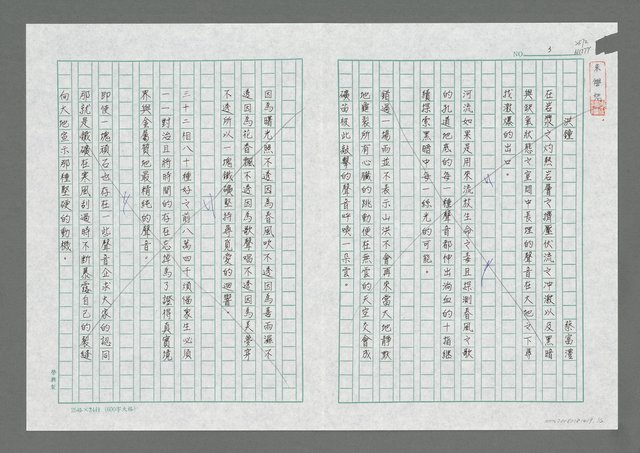 NO. 3
洪鐘 蔡富澧
在岩漿之灼熱岩層之擠壓伏流之沖激以及黑暗
與缺氧狀態之空間中長埋的聲音在大地之下尋
找激爆的出口。
河流如果是用來流放生命之毒且探測春風之歌
的孔道地底的每一種聲音都伸出淌血的十指繼
續探索黑暗中每一絲光的可能。
錯過一場雨並不表示山洪不會再來當大地靜默
地龜裂所有心臟的跳動便在無雲的天空交會成
礦苗彼此敲擊的聲音呼喚一朵雲。
因為曙光照不透因為春風吹不透因為喜雨濕不
透因為花香飄不透因為歌聲唱不透因為美夢穿
不透所以一塊鐵礦堅持尋覓愛的迴響。
三十二相八十種好之前八萬四千煩惱眾生必須
一一對治且將時間的存在忘掉為了證得真實境
界與金屬質地最精純的聲音。
即使一塊頑石也存在一些聲音企求大家的認同
那就是鐵礦在寒風刮過時不斷暴露自己的裂縫
向大地宣示那種堅硬的動機。
25格×24行 (600字大格)
學典製